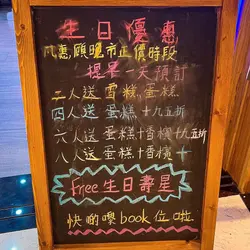 生日優惠
凡惠顧晚市正價時段
提早一天預訂
二人送 雪糕蛋糕
四人送 蛋糕+九五折
六人送 蛋糕+香檳+九五折
八人送 蛋糕+香檳+
Free生日壽星
快啲嚟book位啦